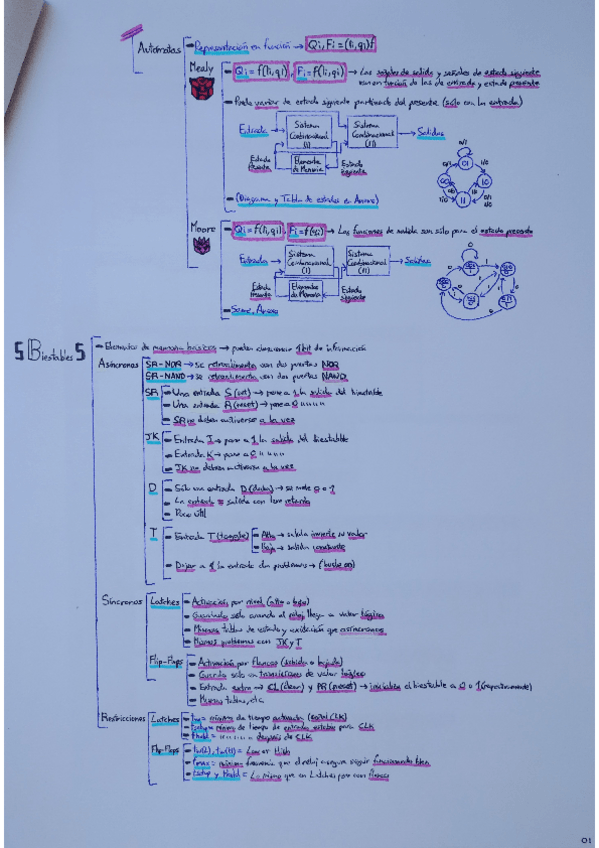 Autómatas
Representación en función → Qi, Fi = (Ii, qi) f
Mealy
Qi = f(Ii, qi), Fi = f(Ii, qi) → Las señales de salida y señales de estado siguiente
son en función de las de entrada y estado presente
Puede variar de estado siguiente partiendo del presente (sólo con la entrada)
Entrada
Sistema Combinacional (I)
Sistema Combinacional (II)
Salidas
Estado Presente
Elementos de Memoria
Estado siguiente
(Diagrama y Tabla de estados en Anexos)
Moore
Qi = f(Ii, qi), Fi = f(qi) → Las funciones de salida son sólo para el estado presente
Entrada
Sistema Combinacional (I)
Sistema Combinacional (II)
Salidas
Estado Presente
Elementos de Memoria
Estado siguiente
Anexos
5 Biestables 5
Elementos de memoria básicos → pueden almacenar 1 bit de información
Asíncronos
SR-NOR → se retroalimenta con dos puertas NOR
SR-NAND → se retroalimenta con dos puertas NAND
SR
Una entrada S (set) → pone a 1 la salida del biestable
Una entrada R (reset) → pone a 0 " " " "
SR no deben activarse a la vez
JK
Entrada J → pone a 1 la salida del biestable
Entrada K → pone a 0 " " " "
JK no deben activarse a la vez
D
Sólo una entrada D (data) → se mete 0 o 1
La entrada = salida con leve retardo
Poco útil
T
Entrada T (toggle)
Alta → salida invierte su valor
Baja → salida constante
Dejar a 1 la entrada da problemas →
Síncronos
Latches
Activación por nivel (alto o bajo)
sólo cuando el reloj llega a valor lógico
Mismas tablas de estado y excitación que asíncronos
Mismos problemas con JK y T
Flip-Flops
Activación por flancos (subida o bajada)
sólo en transiciones de valor lógico
Entrada extra → CL (clear) y PR (preset) → inicializa el biestable a 0 o 1 (respectivamente)
Mismas tablas, etc.
Restricciones
Latches
tw = mínimo de tiempo activado (señal CLK)
tsetup = mínimo de tiempo de entrada estable para CLK
thold = " " " " " después de CLK
Flip-Flops
tw(L), tw(H) = Low or High
Fmax = máxima frecuencia que el reloj consigue seguir funcionando bien
tsetup y thold = Lo mismo que en Latches pero con flancos
01